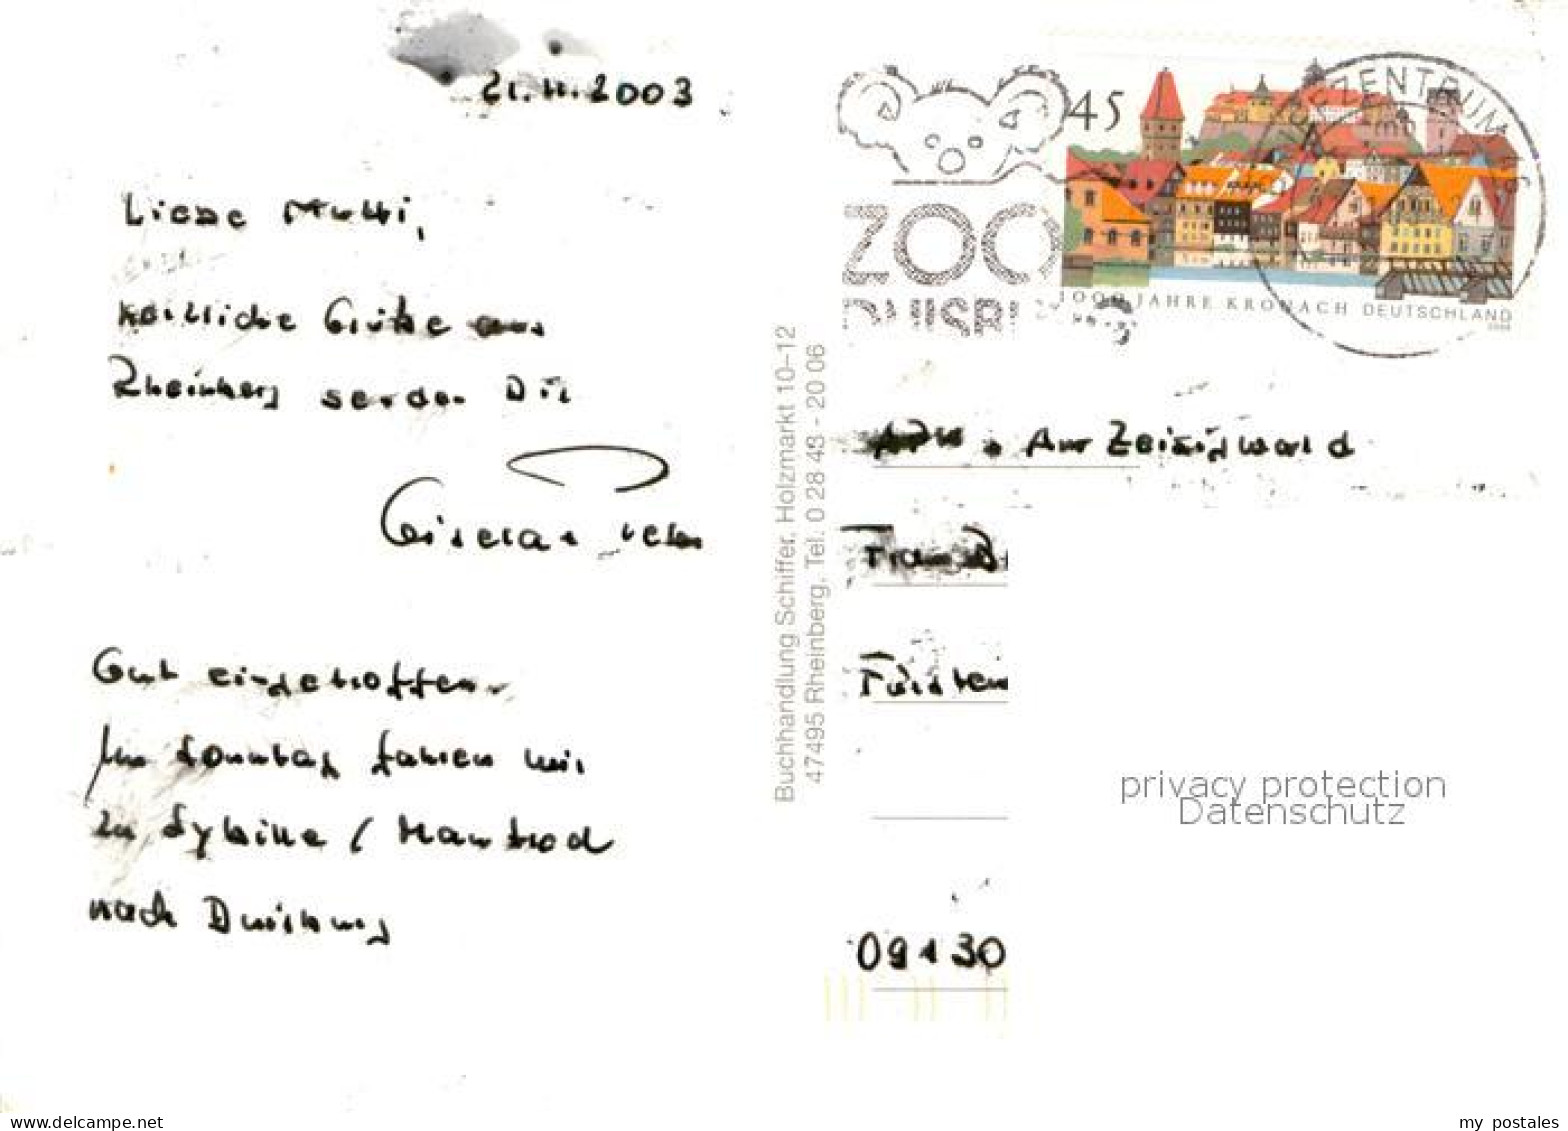 21.11.2003
Liebe Mutti,
herzliche Grüße aus
Rheinberg senden Dir
Gisela + Peter
Gut eingetroffen.
Am Sonntag fahren wir
zu Sybille / Manfred
nach Duisburg
Buchhandlung Schiffer, Holzmarkt 10-12
47495 Rheinberg, Tel. 0 28 43 - 20 06
45
ZENTRUM
ZOO
DUISB
1000 JAHRE KRONACH DEUTSCHLAND
APH. Am Zeisigwald
Frau B
Fürsten
09130
privacy protection
Datenschutz
delcampe.net
my_postales